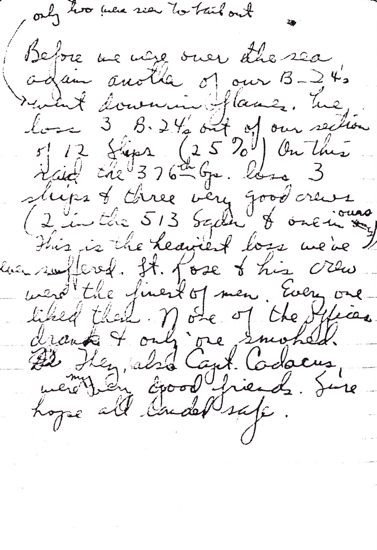 only two men seen to bail out
Before we were over the sea
again another of our B-24's
went down in flames. We
loss 3 B-24's out of our section
of 12 ships (25%) On this
raid the 376th Gp. loss 3
ships & three very good crews
(2 in the 513 Sqdn & one in ours)
This is the heaviest loss we've
ever suffered. Lt. Rose & his crew
were the finest of men. Every one
liked them. None of the officers
drank & only one smoked.
They, also Capt. Cadacus,
were my very good friends. Sure
hope all landed safe.